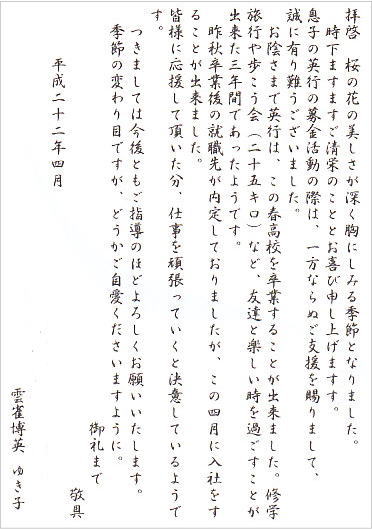 拝啓　桜の花の美しさが深く胸にしみる季節となりました。
時下ますますご清栄のこととお喜び申し上げます。
息子の英行の募金活動の際は、一方ならぬご支援を賜りまして、
誠に有り難うございました。
お陰さまで英行は、この春高校を卒業することが出来ました。修学
旅行や歩こう会（二十五キロ）など、友達と楽しい時を過ごすことが
出来た三年間であったようです。
昨秋卒業後の就職先が内定しておりましたが、この四月に入社をす
ることが出来ました。
皆様に応援して頂いた分、仕事を頑張っていくと決意しているようで
す。
つきましては今後ともご指導のほどよろしくお願いいたします。
季節の変わり目ですが、どうかご自愛くださいますように。
御礼まで
敬具
平成二十二年四月
雲雀博英　ゆき子